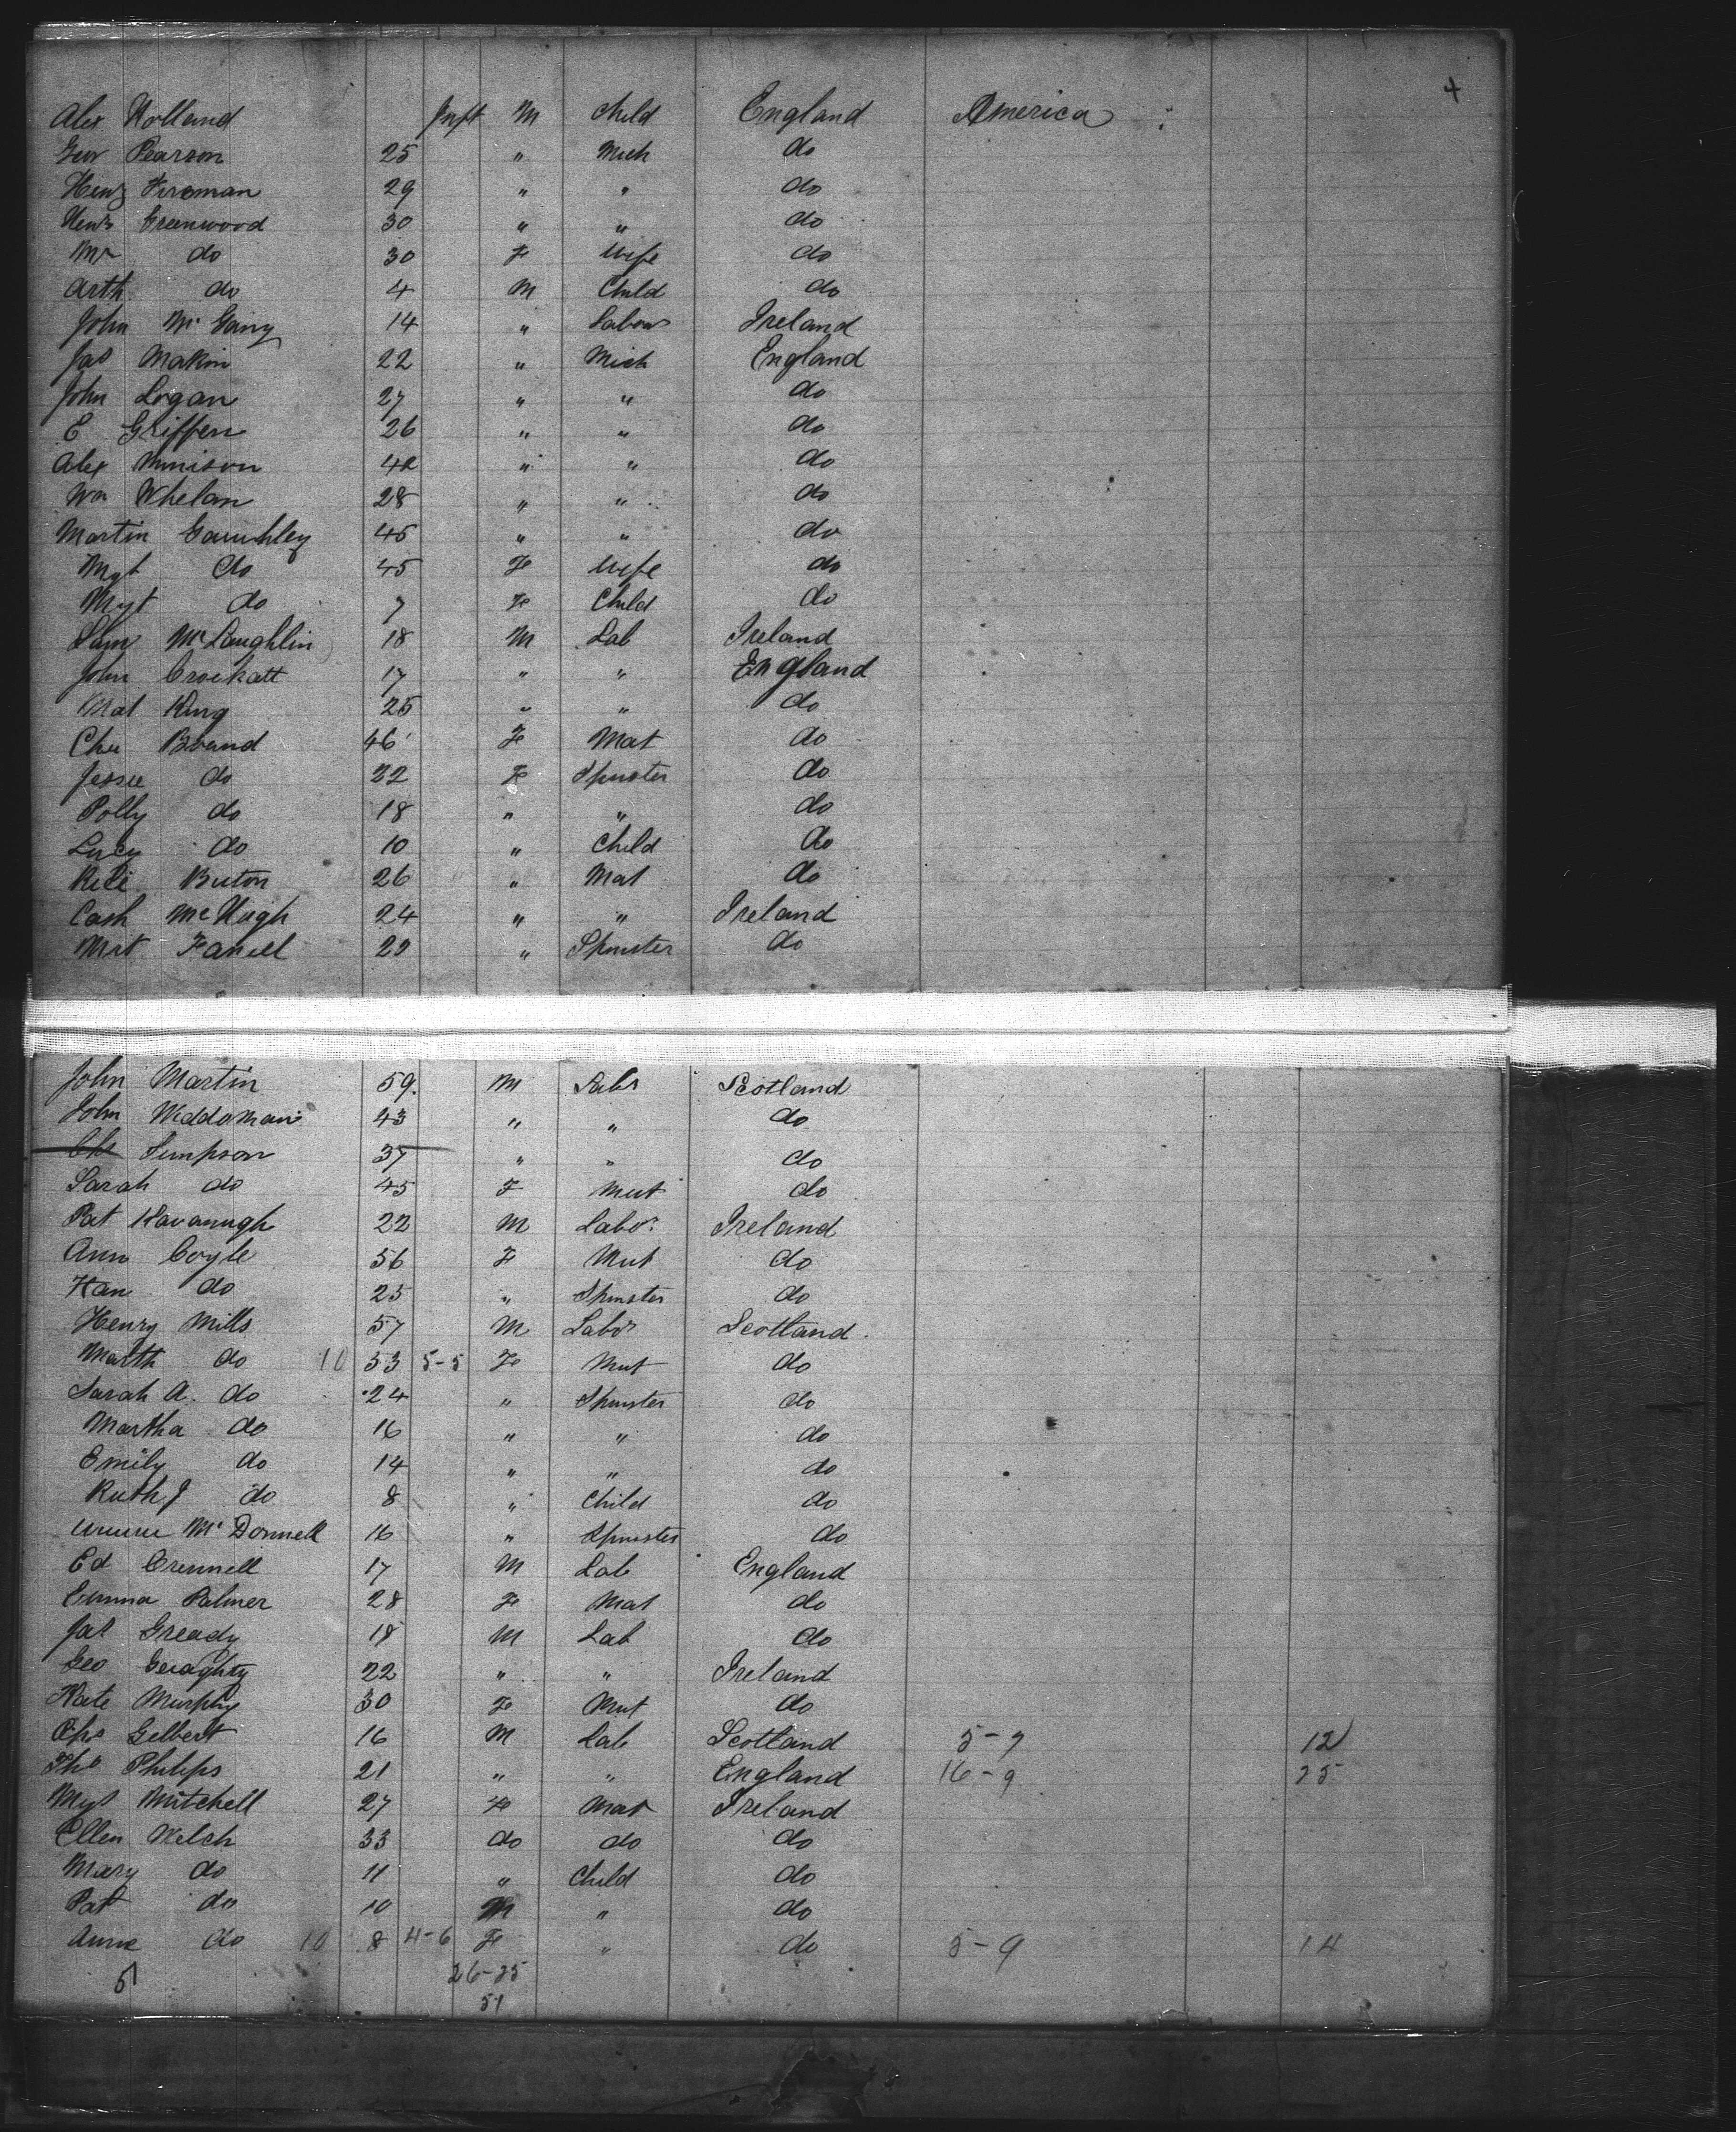 4
Alex Holland Inft M Child England America
Geo Pearson 25 " Mich do
Heny Fireman 29 " " do
Heny Greenwood 30 " " do
Mr do 30 F Wife do
Arth do 4 M Child do
John Mc 14 " Labour Ireland
Jas Makin 22 " Mich England
John Logan 27 " " do
E Griffen 26 " " do
Alex 42 " " do
Wm Whelan 28 " " do
Martin 45 " " do
Mgt do 45 F Wife do
Mgt do 7 F Child do
McLaughlin 18 M Lab Ireland
John Crockatt 17 " " England
Mat King 25 " " do
46 F Mat do
Jessie do 22 F Spinster do
Polly do 18 " " do
Lucy do 10 " Child do
Buton 26 " Mat do
Cath McHugh 24 " " Ireland
Mrt 22 " Spinster do
John Martin 59 M Labr Scotland
John Weddoman 43 " " do
Chs Simpson 37 " " do
Sarah do 45 F Mat do
Pat Kavanagh 22 M Labor Ireland
Ann Coyle 56 F Mat do
Han do 25 " Spinster do
Henry Mills 57 M Labor Scotland
Marth do 10 53 5-5 F Mat do
Sarah A. do 24 " Spinster do
Martha do 16 " " do
Emily do 14 " " do
Ruth J do 8 " Child do
McDonnell 16 " Spinster do
Ed Crennell 17 M Lab England
Emma Palmer 28 F Mat do
Jas Gready 18 M Lab do
Geo Geraghty 22 " " Ireland
Kate Murphy 30 F Mat do
Chs Gelbert 16 M Lab Scotland 5-7 12
Tho Philips 21 " " England 16-9 25
Mgt Mitchell 27 F Mat Ireland
Ellen Welch 33 do do do
Mary do 11 " Child do
Pat do 10 M " do
Annie do 10 8 4-6 F " do 5-9 14
51 26-25
51